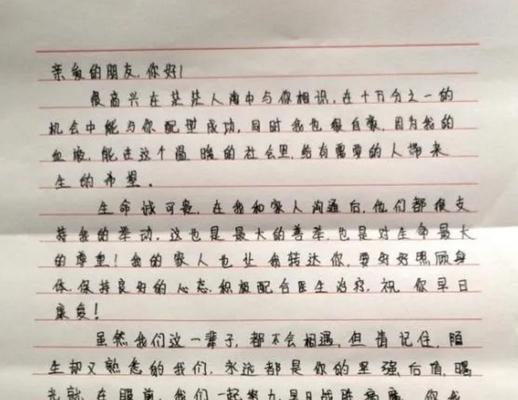 亲爱的朋友,你好!
很高兴在茫茫人海中与你相识,在十万分之一的
机会中能与你配型成功,同时我也很自豪,因为我的
血液,能在这个温暖的社会里,给有需要的人带来
生的希望。
生命诚可贵,在我和家人沟通后,他们都很支
持我的举动,这也是最大的善举,也是对生命最大
的尊重!我的家人也让我转达你,要好好照顾身
体,保持良好的心态,积极配合医生治疗,祝你早日
康复!
虽然我们这一辈子,都不会相遇,但请记住,陌
生却又熟悉的我们,永远都是你的坚强后盾,曙
光就在眼前,我们一起努力,早日战胜病魔